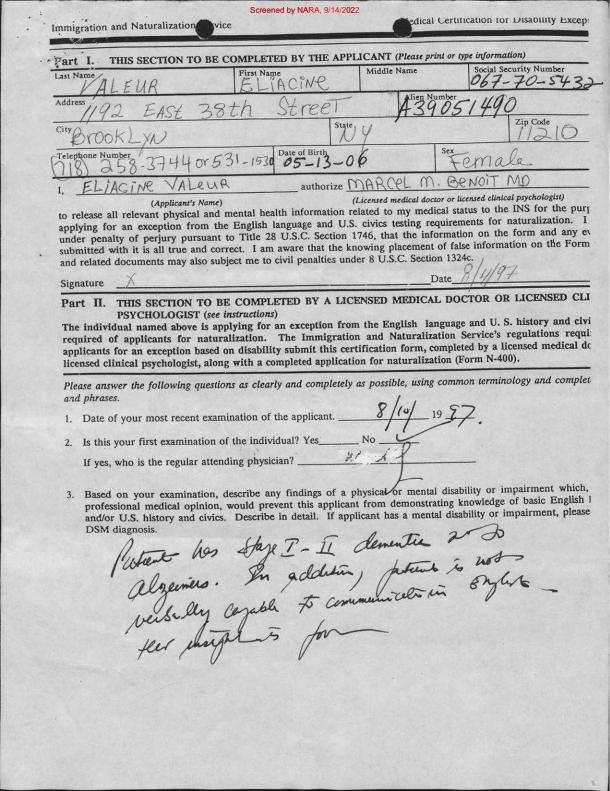 Screened by NARA, 9/14/2022
Immigration and Naturalization vice
edical Certification for Disability Excep
Part I. THIS SECTION TO BE COMPLETED BY THE APPLICANT (Please print or type information)
Last Name First Name Middle Name Social Security Number
VALEUR ELIACINE 067-70-5432
Address Alien Number
1192 EAST 38th Street A39051490
City State Zip Code
BrookLyn NY 11210
Telephone Number Date of Birth Sex
(718) 258-3744 or 531-1530 05-13-06 Female
I, ELIACINE VALEUR authorize MARCEL M. BENOIT MD
(Applicant's Name) (Licensed medical doctor or licensed clinical psychologist)
to release all relevant physical and mental health information related to my medical status to the INS for the pur
applying for an exception from the English language and U.S. civics testing requirements for naturalization. I
under penalty of perjury pursuant to Title 28 U.S.C. Section 1746, that the information on the form and any ev
submitted with it is all true and correct. I am aware that the knowing placement of false information on the Form
and related documents may also subject me to civil penalties under 8 U.S.C. Section 1324c.
Signature X Date 8/4/97
Part II. THIS SECTION TO BE COMPLETED BY A LICENSED MEDICAL DOCTOR OR LICENSED CLI
PSYCHOLOGIST (see instructions)
The individual named above is applying for an exception from the English language and U. S. history and civi
required of applicants for naturalization. The Immigration and Naturalization Service's regulations requi
applicants for an exception based on disability submit this certification form, completed by a licensed medical do
licensed clinical psychologist, along with a completed application for naturalization (Form N-400).
Please answer the following questions as clearly and completely as possible, using common terminology and complet
and phrases.
1. Date of your most recent examination of the applicant. 8/10/ 19 97.
2. Is this your first examination of the individual? Yes No
If yes, who is the regular attending physician?
3. Based on your examination, describe any findings of a physical or mental disability or impairment which,
professional medical opinion, would prevent this applicant from demonstrating knowledge of basic English l
and/or U.S. history and civics. Describe in detail. If applicant has a mental disability or impairment, please
DSM diagnosis.
Patient has stage I-II dementia
Alzeimers. In addition, patient is not
verbally capable to communicate in English
Her insight is